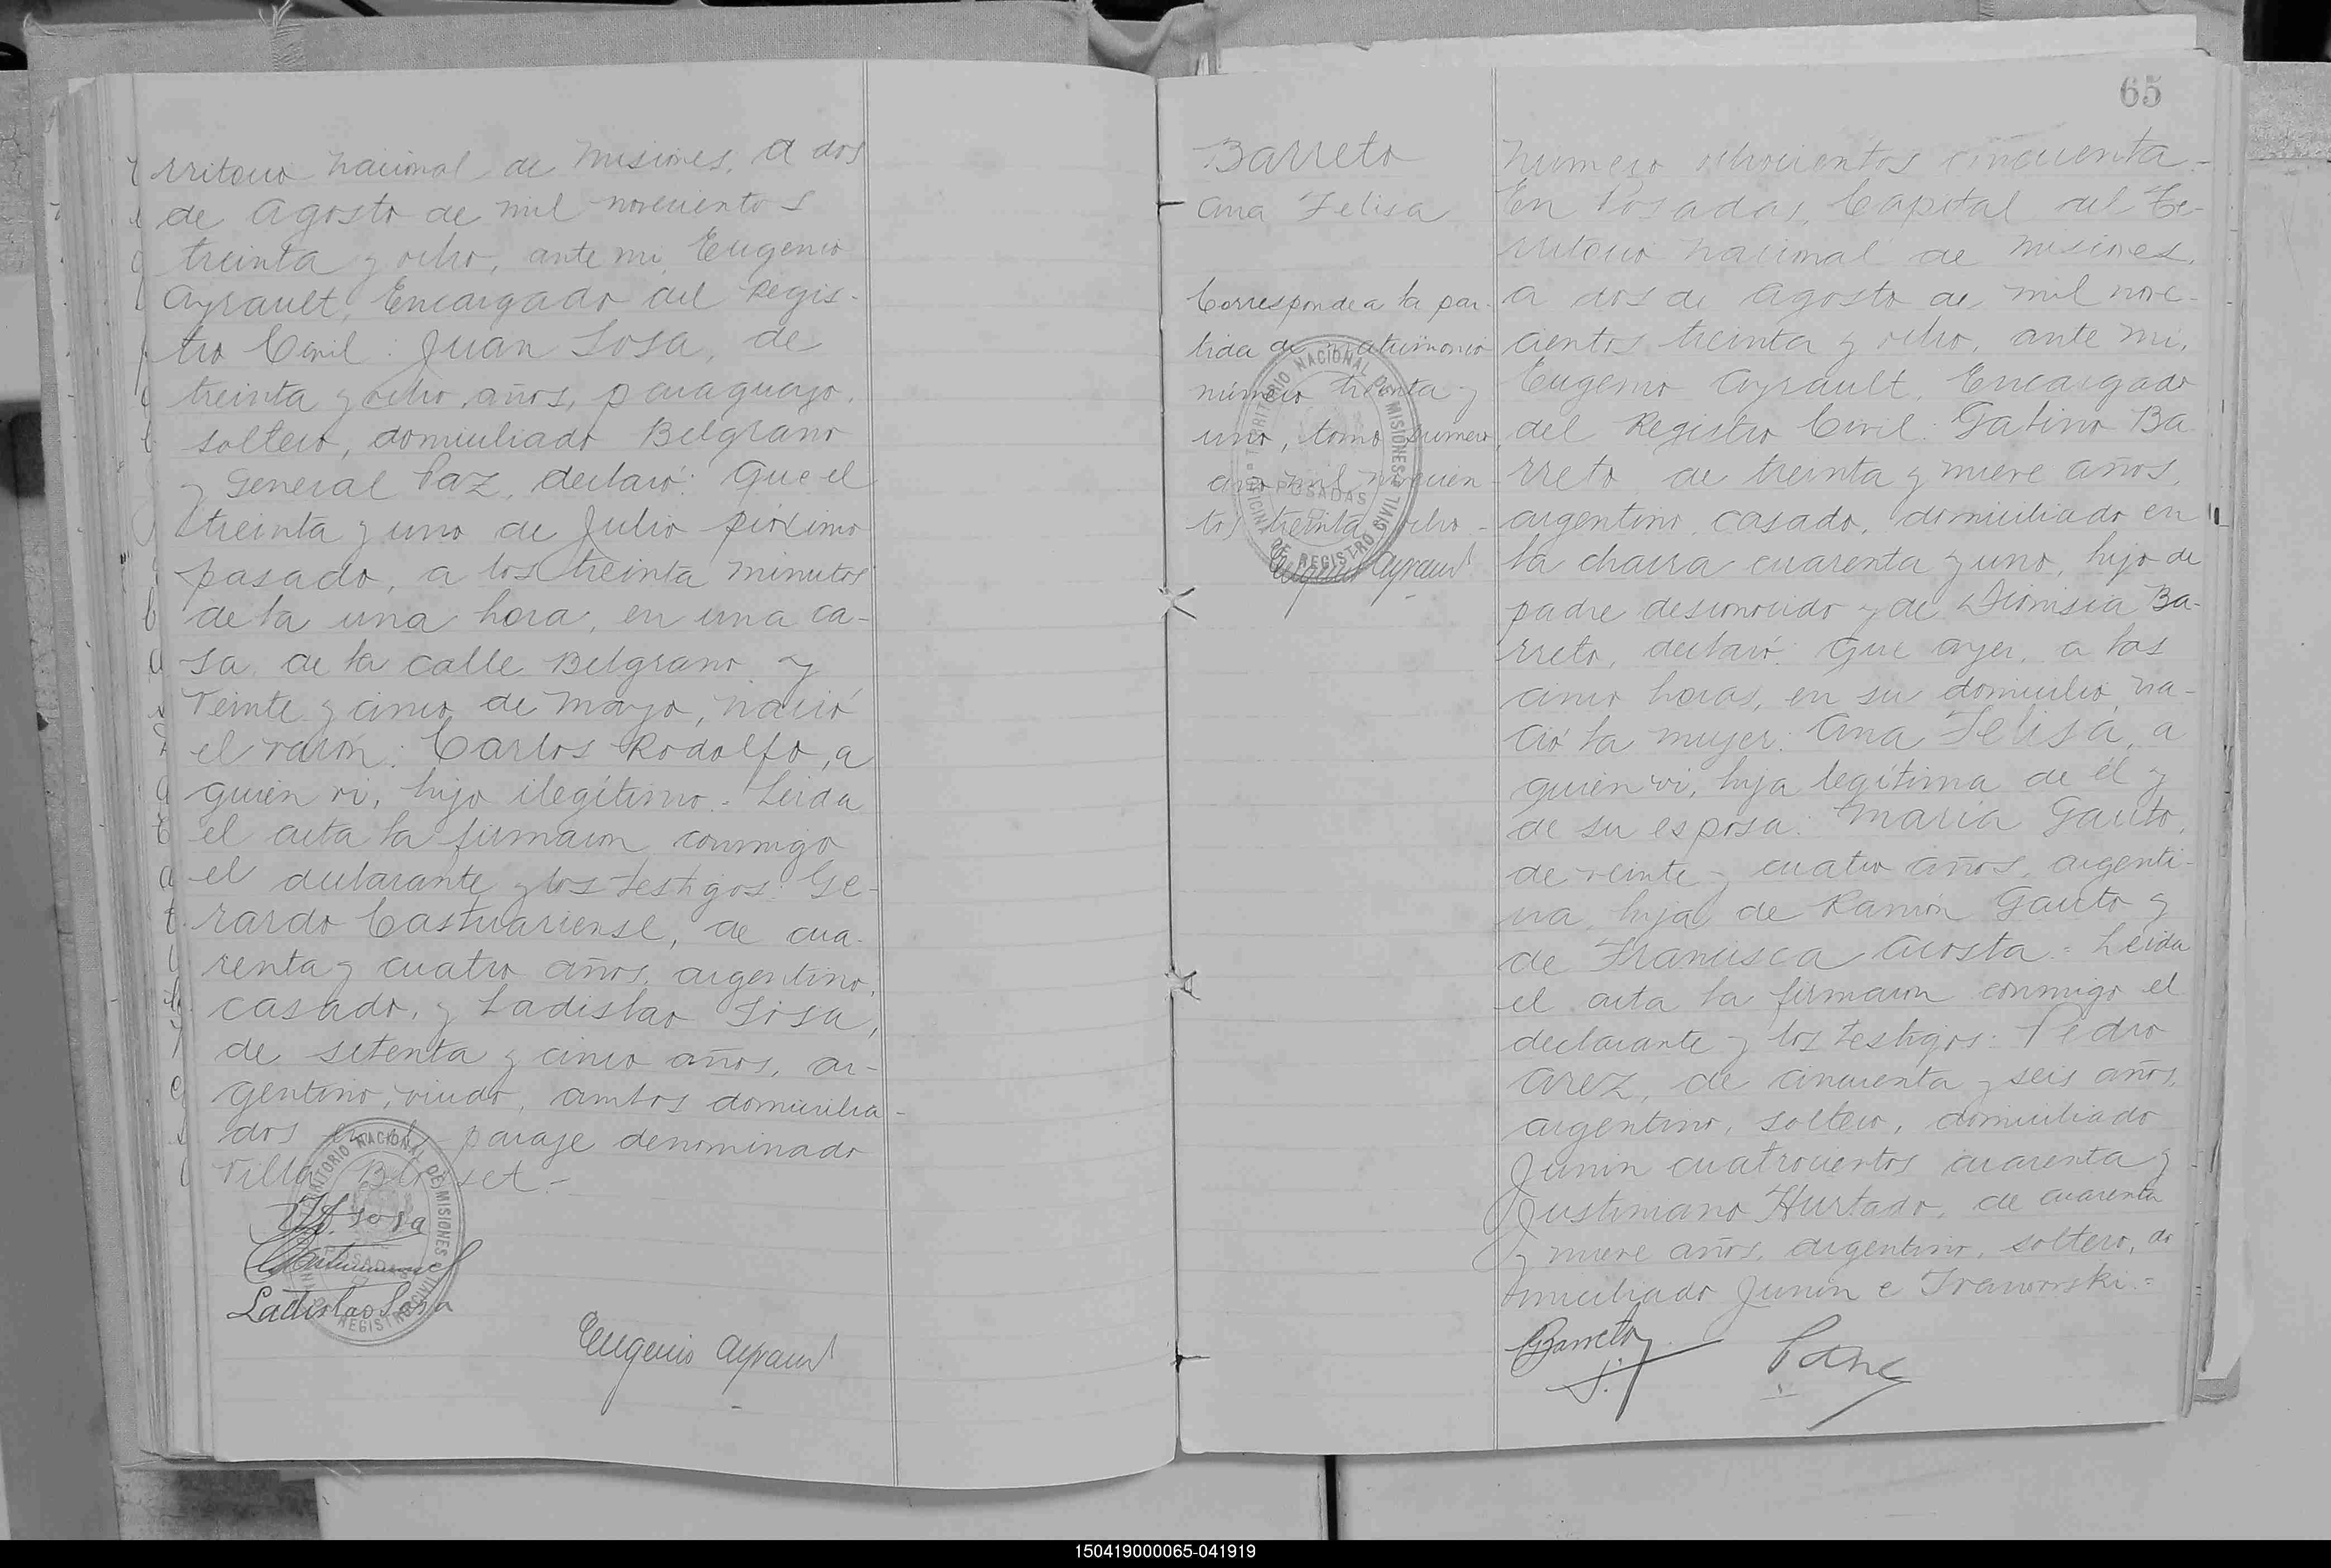 rritorio nacional de Misiones, a dos
de Agosto de mil novecientos
treinta y ocho, ante mi, Eugenio
Ayrault, Encargado del Regis-
tro Civil: Juan Sosa, de
treinta y ocho años, paraguayo,
soltero, domiciliado Belgrano
y General Paz, declaró: Que el
treinta y uno de Julio próximo
pasado, a los treinta minutos
de la una hora, en una ca-
sa de la calle Belgrano y
Veinte y cinco de Mayo, nació
el varón: Carlos Rodolfo, a
quien vi, hijo ilegítimo.- Leida
el acta la firmaron conmigo
el declarante y los testigos: Ge-
rardo Castuariense, de cua-
renta y cuatro años, argentino,
casado, y Ladislao Sosa,
de setenta y cinco años, ar-
gentino, viudo, ambos domicilia-
dos en el paraje denominado
Villa Blosset.-
Sosa
Ladislao Sosa
Eugenio Ayrault
TERRITORIO NACIONAL DE MISIONES
POSADAS
OFICINA DE REGISTRO CIVIL
65
Barreto
Ana Felisa
Corresponde a la par-
tida de matrimonio
número treinta y
uno, tomo primero,
año mil novecien-
tos treinta y ocho.-
Eugenio Ayrault
TERRITORIO NACIONAL DE MISIONES
POSADAS
OFICINA DE REGISTRO CIVIL
Número ochocientos cincuenta.-
En Posadas, Capital del Te-
rritorio nacional de Misiones,
a dos de Agosto de mil nove-
cientos treinta y ocho, ante mi,
Eugenio Ayrault, Encargado
del Registro Civil: Gabino Ba
rreto de treinta y nueve años,
argentino, casado, domiciliado en
la chacra cuarenta y uno, hijo de
padre desconocido y de Dionisia Ba-
rreto, declaró: Que ayer, a las
cinco horas, en su domicilio, na-
ció la mujer: Ana Felisa, a
quien vi, hija legítima de él y
de su esposa: María Gauto,
de veinte y cuatro años, argenti-
na, hija de Ramón Gauto y
de Francisca Acosta.= Leida
el acta la firmaron conmigo el
declarante y los testigos: Pedro
Arez, de cincuenta y seis años,
argentino, soltero, domiciliado
Junin cuatrocientos cuarenta y
Justiniano Hurtado, de cuarenta
y nueve años, argentino, soltero, do
miciliado Junin e Iraworski.=
GBarreto
150419000065-041919